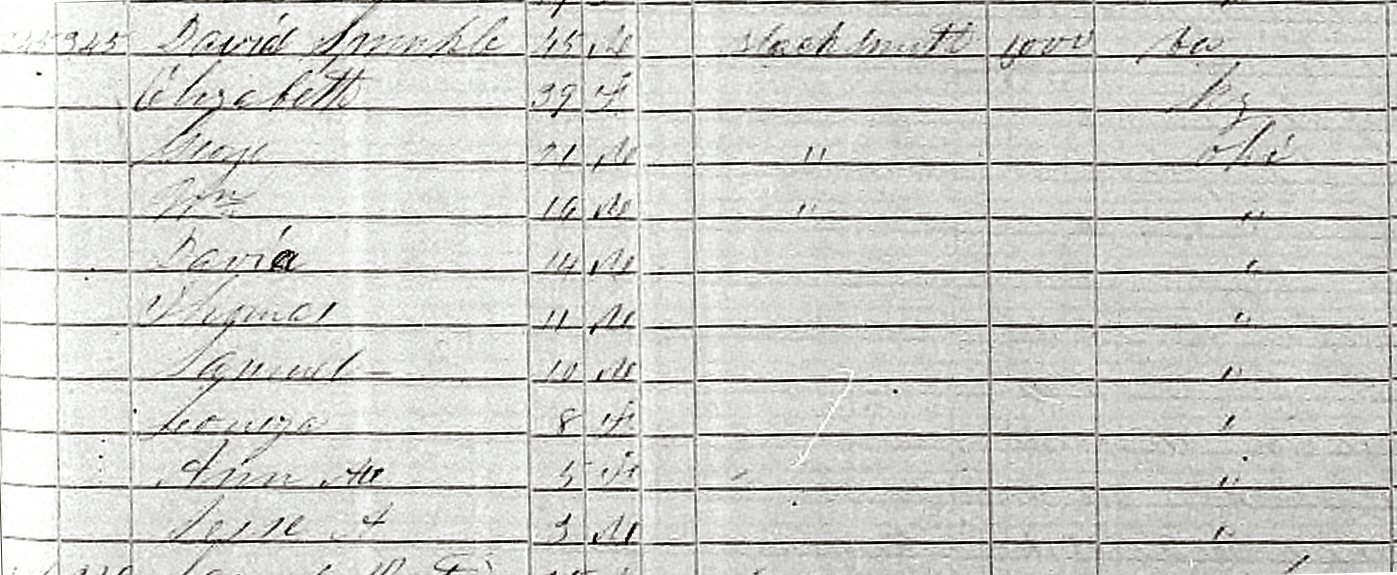 345 345 David Sprinkle 45 M Blacksmith 1000
Elizabeth 39 F Ky
George 21 M " Ohi
Wm 16 M " "
David 14 M "
Thomas 11 M "
Samuel 10 M "
Louiza 8 F "
Ann M 5 F "
Jesse A 3 M "